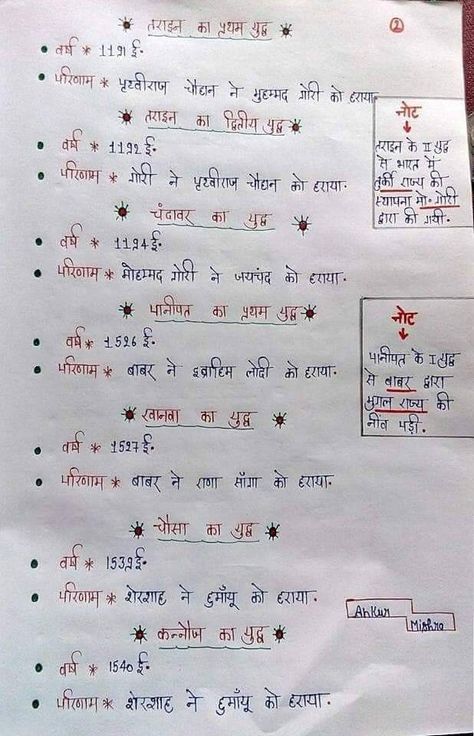 ②
तराइन का प्रथम युद्ध
वर्ष * 1191 ई.
परिणाम * पृथ्वीराज चौहान ने मुहम्मद गोरी को हराया.
तराइन का द्वितीय युद्ध
वर्ष * 1192 ई.
परिणाम * गोरी ने पृथ्वीराज चौहान को हराया.
नोट
तराइन के II युद्ध
से भारत में
तुर्की राज्य की
स्थापना मो. गोरी
द्वारा की गयी.
चंदावर का युद्ध
वर्ष * 1194 ई.
परिणाम * मोहम्मद गोरी ने जयचंद को हराया.
पानीपत का प्रथम युद्ध
वर्ष * 1526 ई.
परिणाम * बाबर ने इब्राहिम लोदी को हराया.
नोट
पानीपत के I युद्ध
से बाबर द्वारा
मुगल राज्य की
नींव पड़ी.
खानवा का युद्ध
वर्ष * 1527 ई.
परिणाम * बाबर ने राणा साँगा को हराया.
चौसा का युद्ध
वर्ष * 1539 ई.
परिणाम * शेरशाह ने हुमाँयू को हराया.
Ankur
Mishra
कन्नौज का युद्ध
वर्ष * 1540 ई.
परिणाम * शेरशाह ने हुमाँयू को हराया.